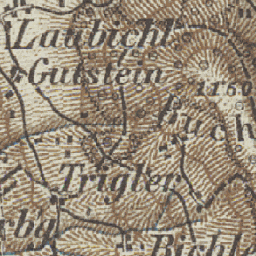 Laubichl
Gutstein
1150
Buch
Trigler
Bichl